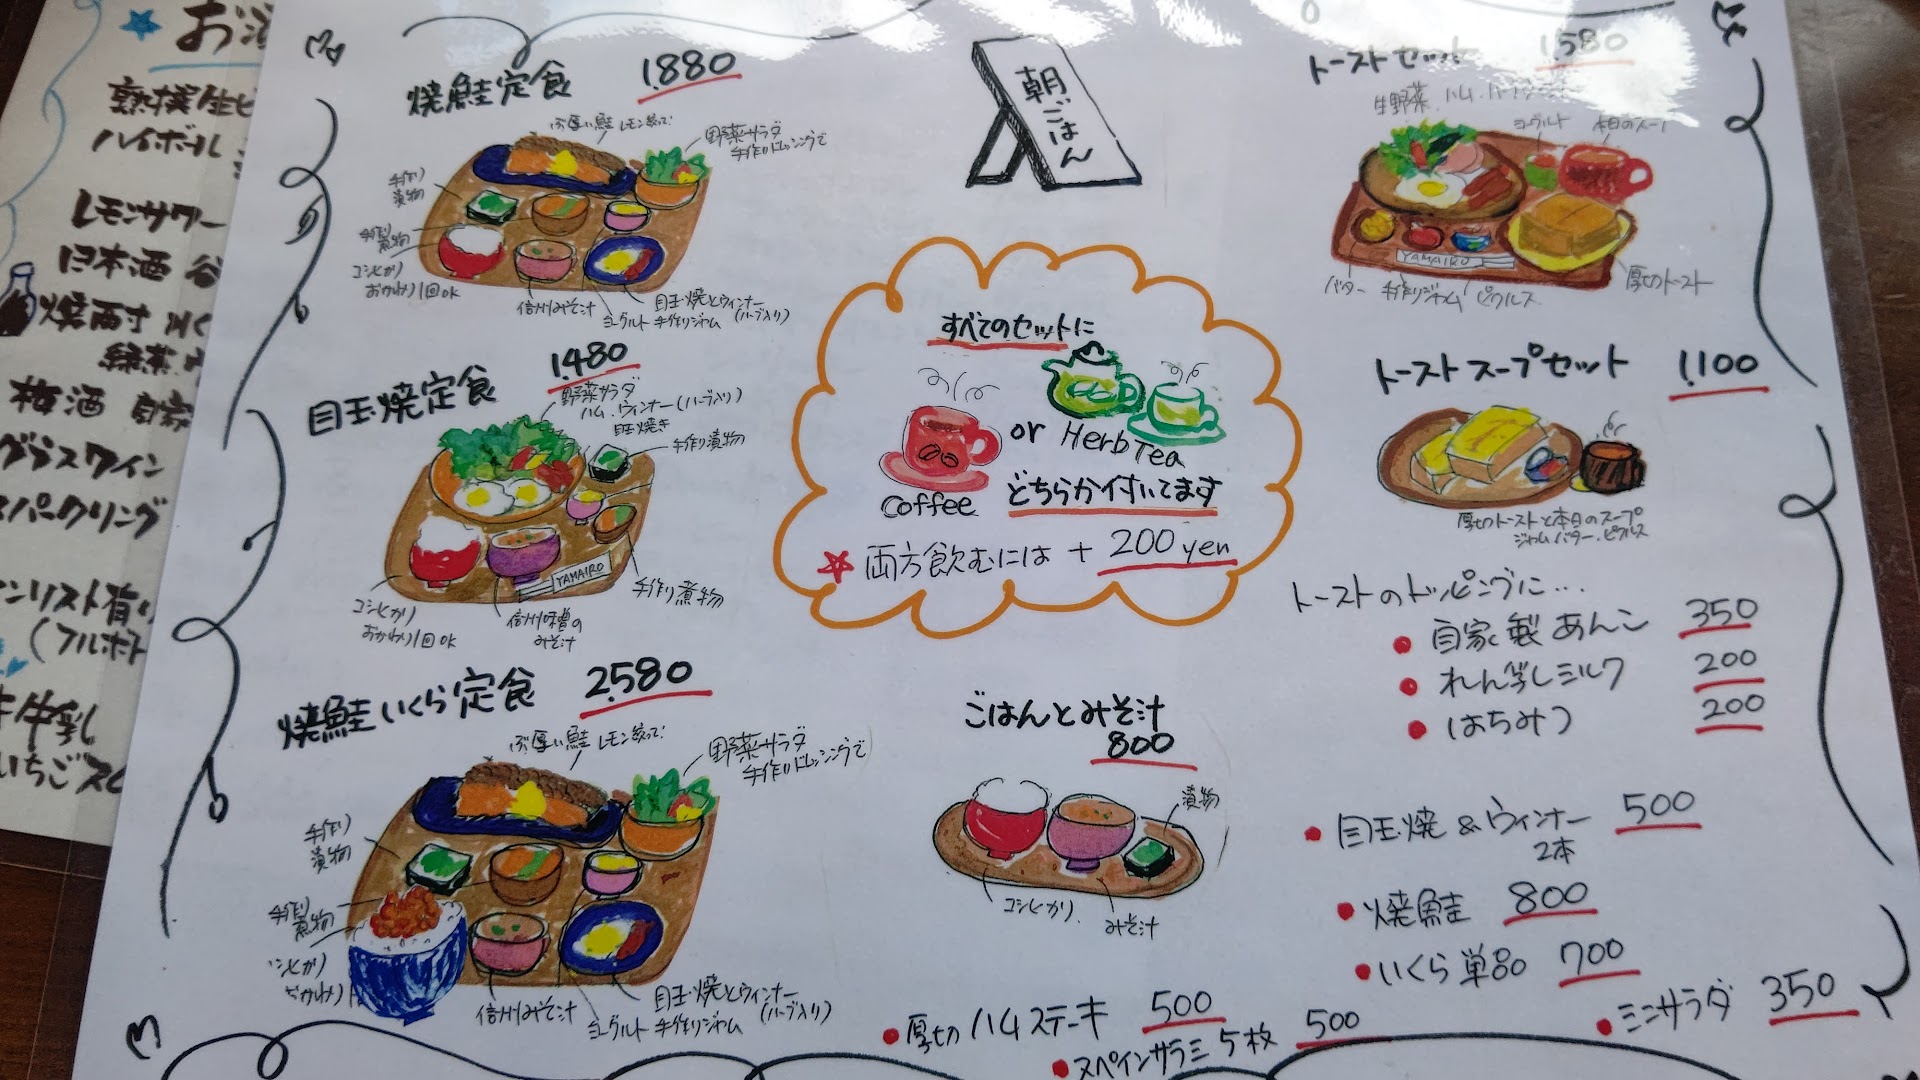 お酒
ハイボール
レモンサワー
日本酒
梅酒 自家
グラスワイン
スパークリング
朝ごはん
焼鮭定食 1.880
ぶ厚い鮭 レモン絞って!
野菜サラダ
手作りドレッシングで
手作り
漬物
手作り
煮物
コシヒカリ
おかわり1回OK
信州みそ汁
ヨーグルト 手作りジャム
目玉焼とウィンナー
(ハーブ入り)
目玉焼定食 1.480
野菜サラダ
ハム.ウィンナー(ハーブ入り)
目玉焼き
手作り漬物
YAMAIRO
手作り煮物
コシヒカリ
おかわり1回OK
信州味噌の
みそ汁
焼鮭いくら定食 2.580
ぶ厚い鮭 レモン絞って!
野菜サラダ
手作りドレッシングで
手作り
漬物
手作り
煮物
コシヒカリ
おかわり
信州みそ汁
ヨーグルト 手作りジャム
目玉焼とウィンナー
(ハーブ入り)
すべてのセットに
or Herb Tea
Coffee
どちらか付いてます
両方飲むには + 200 yen
ごはんとみそ汁
800
漬物
コシヒカリ
みそ汁
トーストセット 1.580
生野菜.ハム.
ヨーグルト
本日のスープ
YAMAIRO
バター 手作りジャム ピクルス
厚切トースト
トーストスープセット 1.100
厚切トーストと本日のスープ
ジャムバター.ピクルス
トーストのトッピングに...
自家製あんこ 350
れん乳ミルク 200
はちみつ 200
目玉焼&ウィンナー 500
2本
焼鮭 800
いくら単品 700
ミニサラダ 350
厚切ハムステーキ 500
スペインサラミ5枚 500